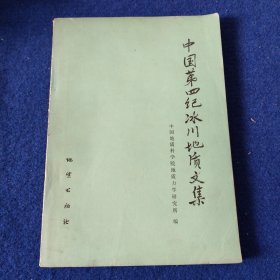 中国第四纪冰川地质文集
中国地质科学院地质力学研究所 编
地质出版社